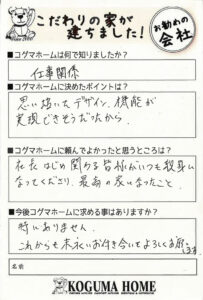 こだわりの家が
建ちました！
お勧めの
会社
■コグマホームは何で知りましたか？
仕事関係
■コグマホームに決めたポイントは？
思い描いたデザイン、機能が
実現できそうだったから。
■コグマホームに頼んでよかったと思うところは？
社長はじめ関わる皆様がいつも親身に
なってくださり、最高の家になったこと。
■今後コグマホームに求める事はありますか？
特にありません。
これからも末永いお付き合いでよろしくお願い
します。
名前
KOGUMA HOME